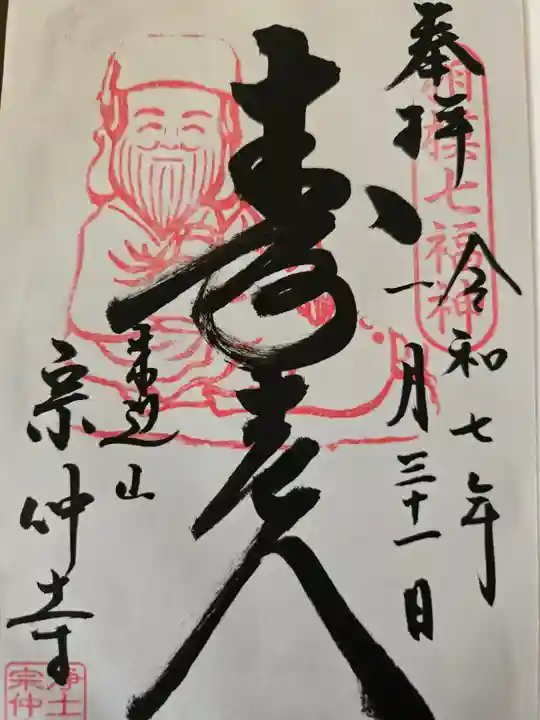 奉拝
相模七福神
令和七年
一月三十一日
寿老人
来迎山
宗仲寺
浄土
宗仲